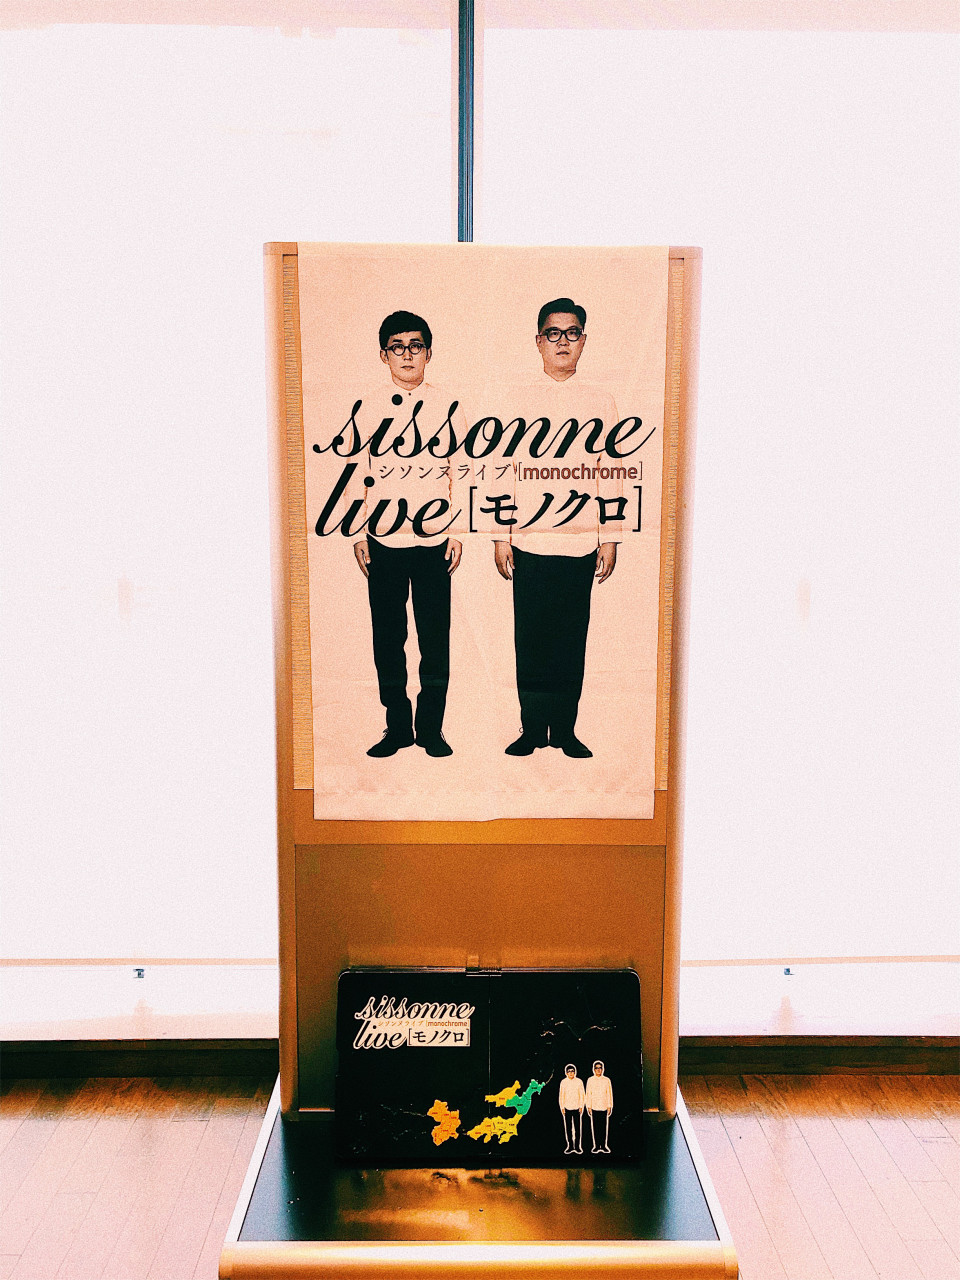 sissonne
シソンヌライブ [monochrome]
live [モノクロ]
sissonne
シソンヌライブ [monochrome]
live [モノクロ]